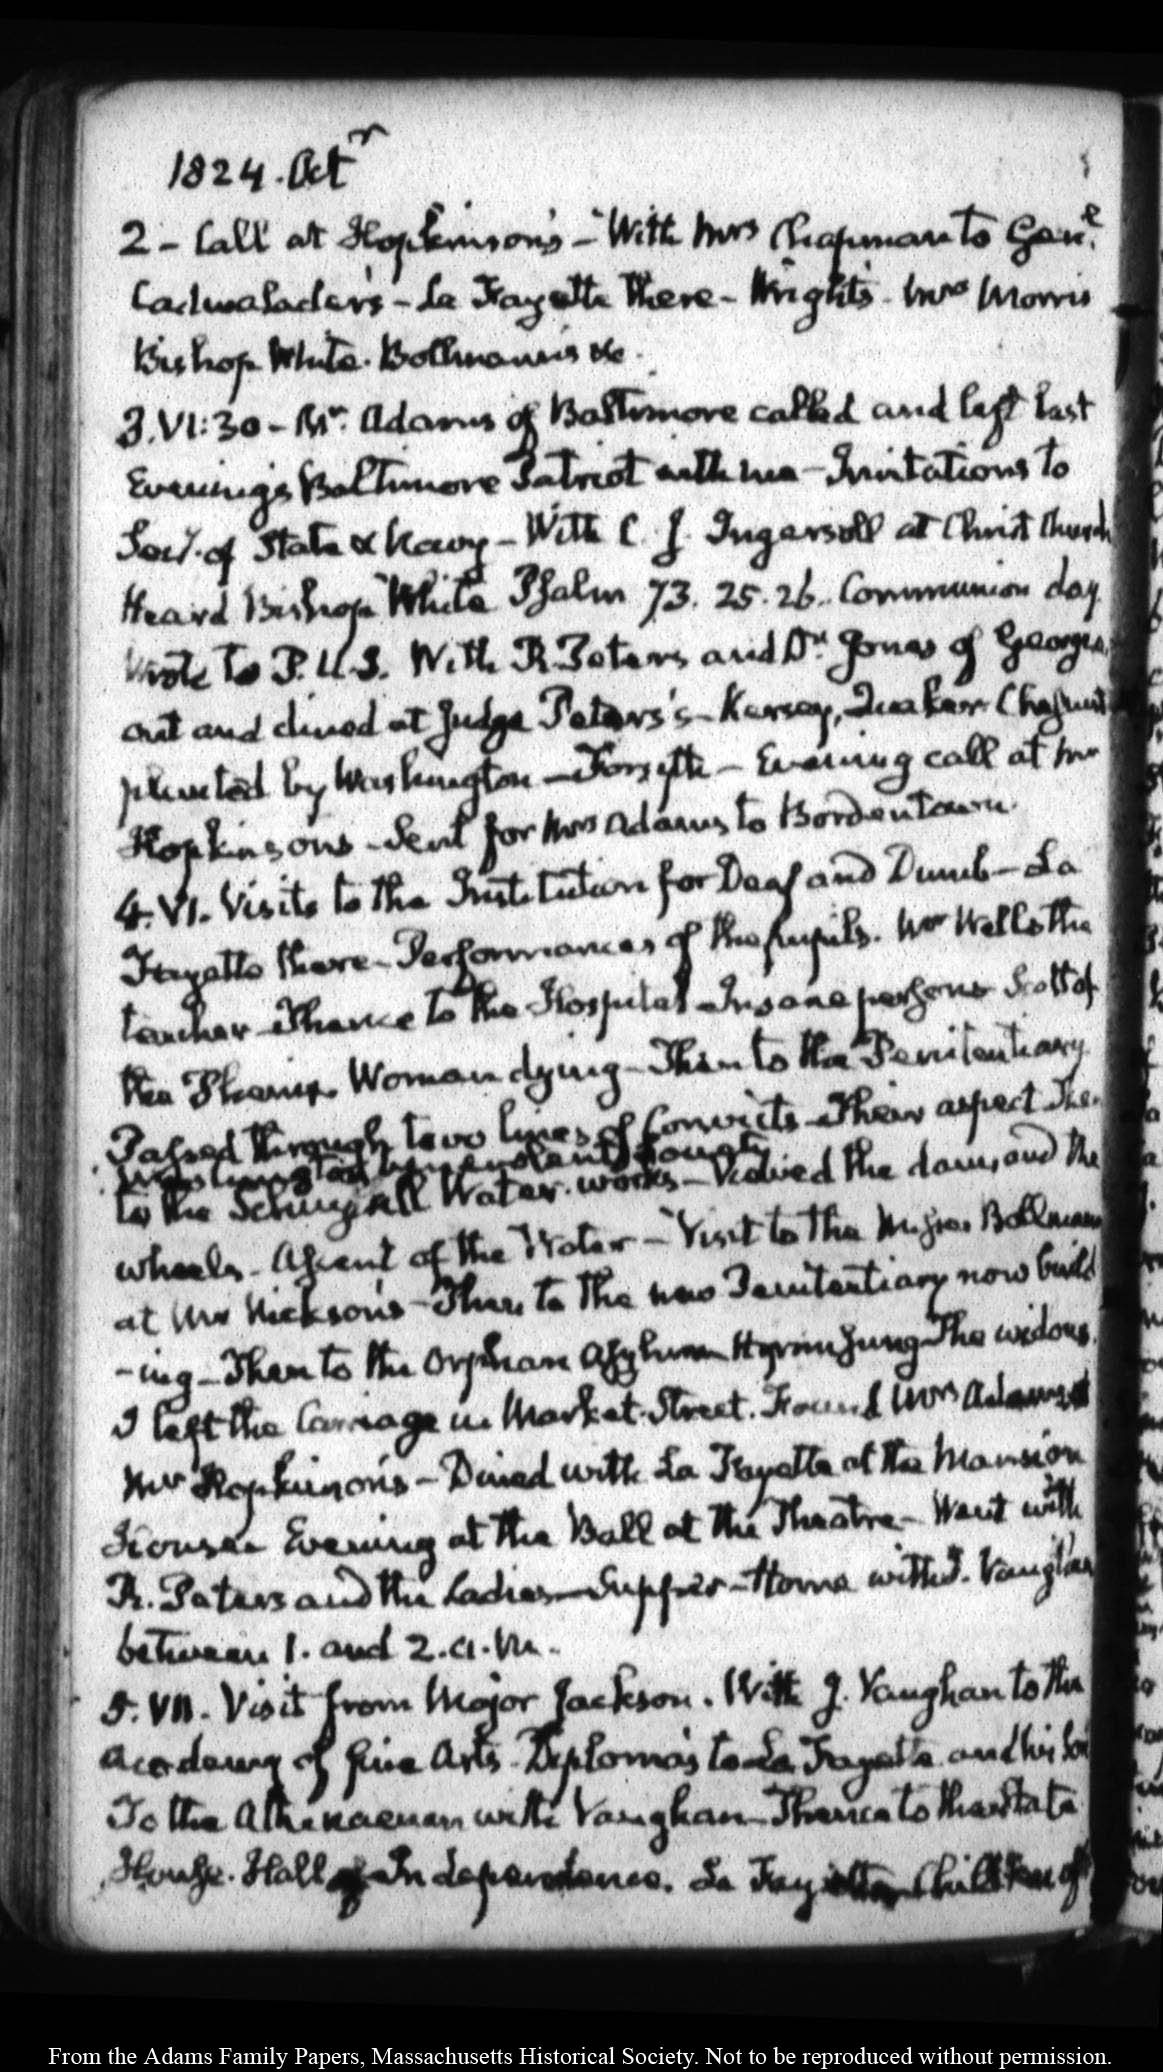 1824. Octr
2 - Call at Hopkinson's - With Mrs Chapman to Genl.
Cadwalader's - La Fayette there - Wright's. Mrs Morris
Bishop White. Bollman's &c.
3. VI:30 - Mr. Adams of Baltimore called and left last
Evening's Baltimore Patriot with me - Invitations to
Secy. of State & Navy - With C. J. Ingersoll at Christ Church
Heard Bishop White Psalm 73. 25. 26. Communion day.
Wrote to P. U. S. With R. Peters and Dr. Jones of Georgia
out and dined at Judge Peters's - Kersey, Quaker - Chesnut
planted by Washington - Forsyth - Evening call at Mr
Hopkinson's - Sent for Mrs Adams to Bordentown.
4. VI. Visits to the Institution for Deaf and Dumb - La
Fayette there - Performances of the pupils. Mr Wells the
teacher - Thence to the Hospital - Insane persons Scott of
the Woman dying - Then to the Penitentiary
Passed through two lines of Convicts - Their aspect Then
Washington benevolent
to the Schuylkill Water-works - Viewed the dam, and the
wheels - Ascent of the Water - Visit to the Misses Bollman
at Mr Nickson's - Then to the new Penitentiary now build
-ing - Then to the Orphan Asylum - Hymn sung - The widows.
I left the Carriage in Market-Street. Found Mrs Adams at
Mr Hopkinson's - Dined with La Fayette at the Mansion
House - Evening at the Ball at the Theatre - Went with
R. Peters and the Ladies - Supper - Home with J. Vaughan
between 1. and 2. a.m.
5. VII. Visit from Major Jackson. With J. Vaughan to the
Academy of fine Arts - Diploma's to La Fayette and his Son
To the Athenaeum with Vaughan - Thence to the State
House. Hall of Independence. La Fayette Children of
From the Adams Family Papers, Massachusetts Historical Society. Not to be reproduced without permission.